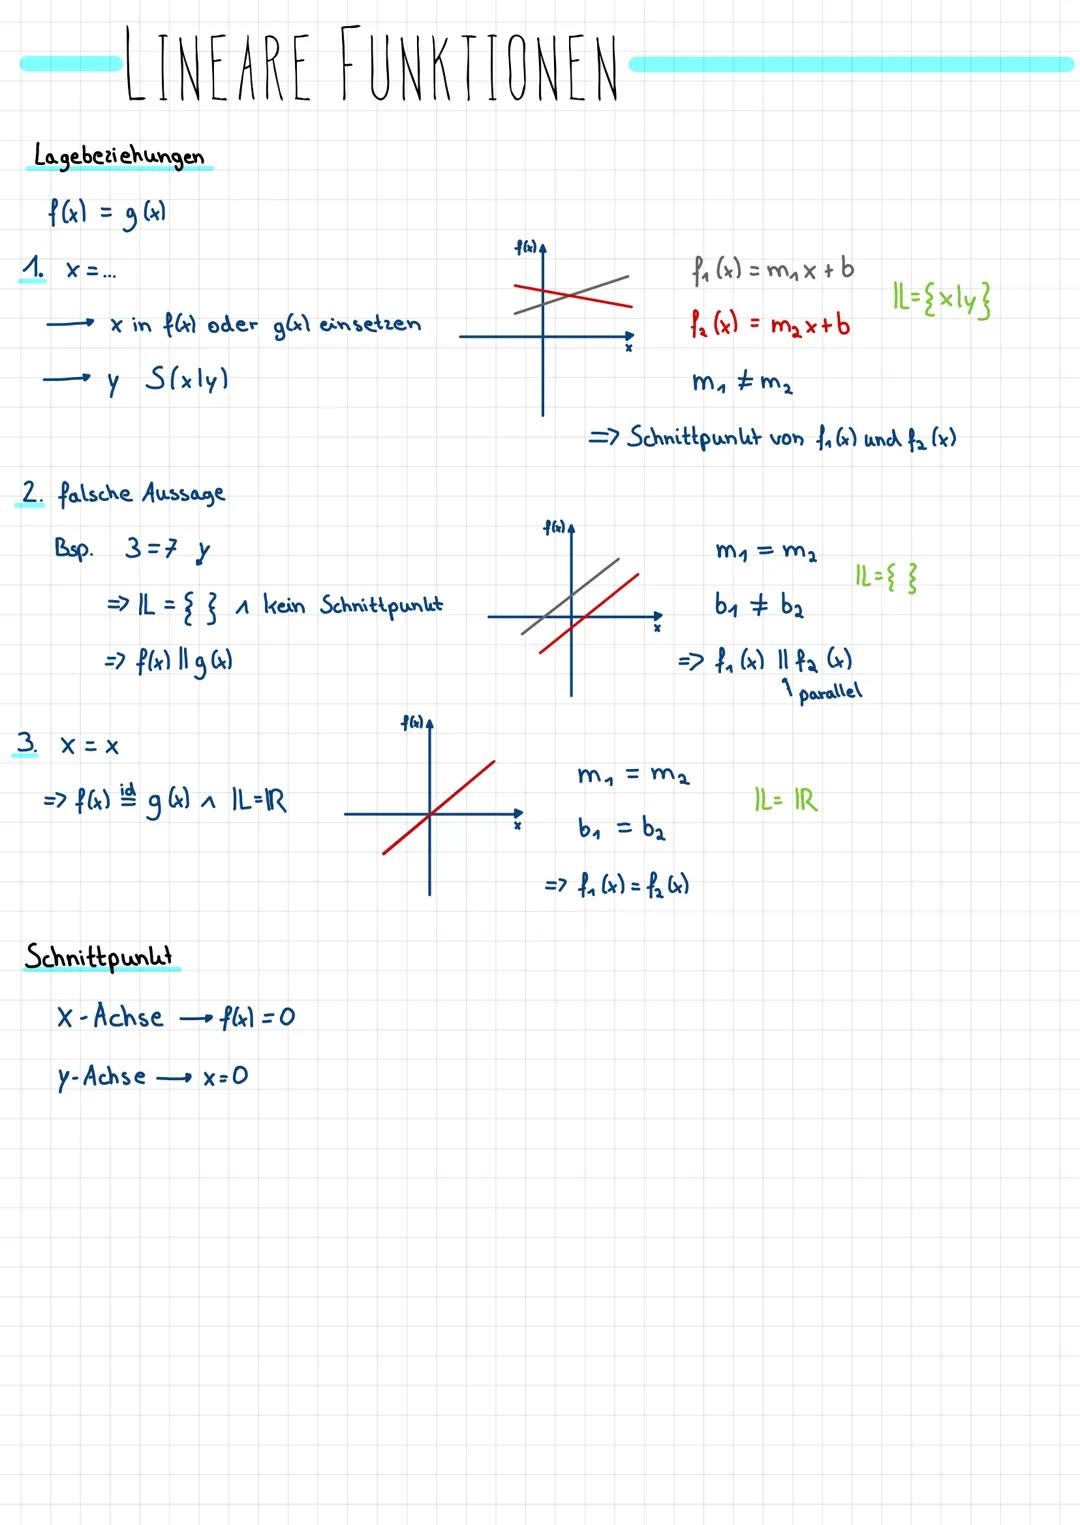 LINEARE FUNKTIONEN
Lagebeziehungen
f(x) = g(x)
1. x = ...
→ x in f(x) oder g(x) einsetzen
→ y S(x|y)
f(x)
x
f₁(x) = m₁x + b
f₂(x) = m₂x + b
m₁ ≠ m₂
𝕃={x|y}
=> Schnittpunkt von f₁(x) und f₂(x)
2. falsche Aussage
Bsp. 3=7 y
=> 𝕃 = { } ∧ kein Schnittpunkt
=> f(x) || g(x)
f(x)
x
m₁ = m₂
b₁ ≠ b₂
𝕃={ }
=> f₁(x) || f₂(x)
parallel
3. x = x
=> f(x) id = g(x) ∧ 𝕃=ℝ
f(x)
x
m₁ = m₂
b₁ = b₂
𝕃= ℝ
=> f₁(x) = f₂(x)
Schnittpunkt
X-Achse → f(x) = 0
y-Achse → x=0